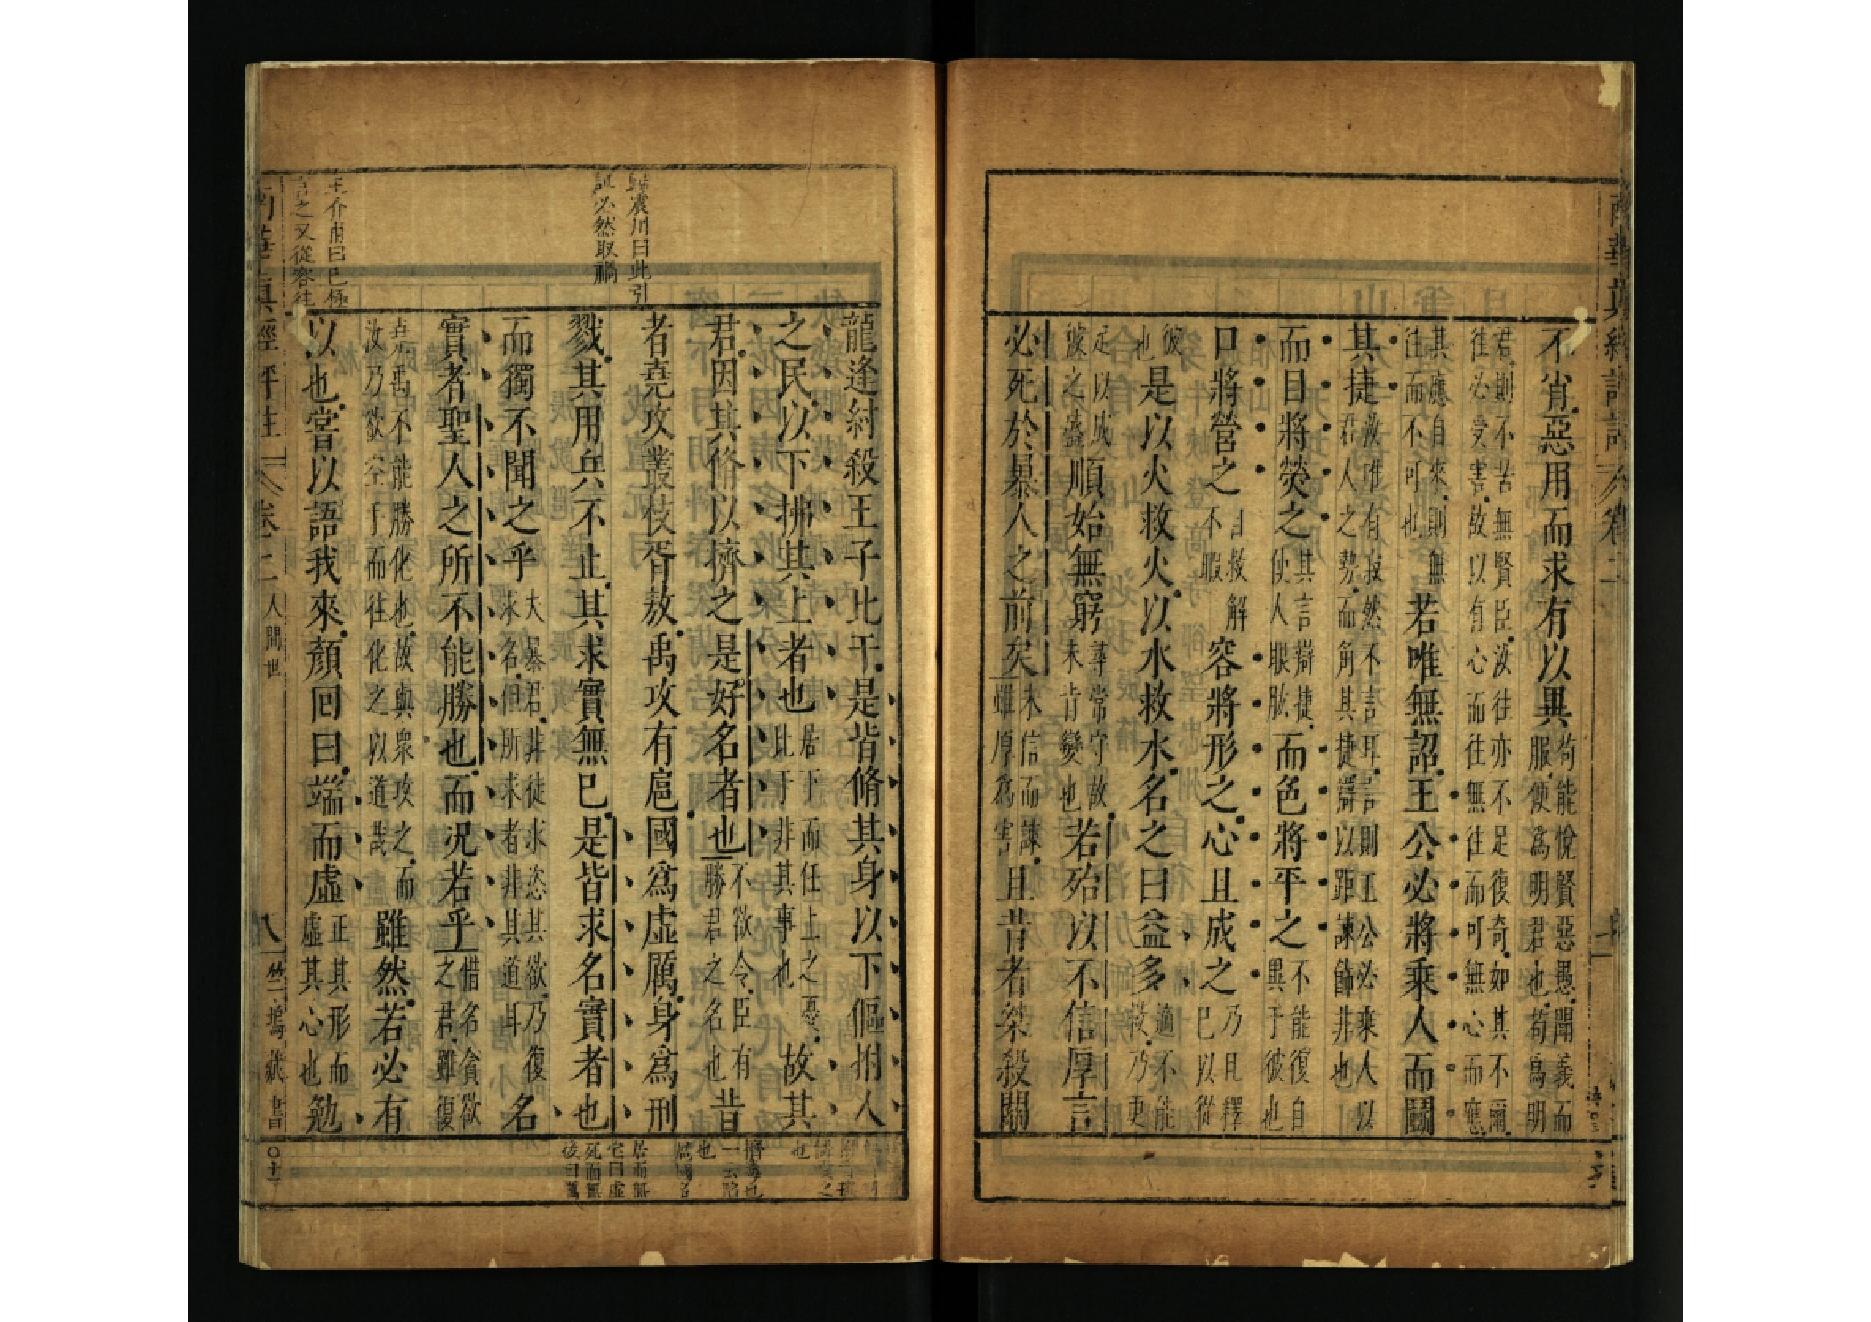 不肖惡用而求有以異苟能悅賢惡愚聞義而服便爲明君也苟爲明
君則不苦無賢臣汝往亦不足復奇如其不爾往必受害故以有心而往無往而可無心而應
其應自來則無往而不可也若唯無詔王公必將乘人而鬭
其捷汝唯有寂然不言耳言則王公必乘人以君人之勢而角其捷辯以距諫飾非也
而目將熒之其言辯捷使人眼眩而色將平之不能復自異于彼也
口將營之自救解不暇容將形之心且成之乃且釋已以從
彼也是以火救火以水救水名之曰益多適不能救乃更
足以成彼之盛順始無窮尋常守故未肯變也若殆以不信厚言
必死於暴人之前矣未信而諫雖厚爲害且昔者桀殺關
龍逢紂殺王子比干是皆脩其身以下傴拊人
之民以下拂其上者也居下而任上之憂非其事也故其
君因其脩以擠之是好名者也不欲令臣有勝君之名也昔
者堯攻叢枝胥敖禹攻有扈國爲虛厲身爲刑
戮其用兵不止其求實無已是皆求名實者也
而獨不聞之乎夫暴君非徒求恣其欲乃復求名但所求者非其道耳名
實者聖人之所不能勝也而況若乎惜名貪欲之君雖復
堯禹不能勝化也故與衆攻之而汝乃欲空手而往化之以道哉雖然若必有
以也嘗以語我來顏回曰端而虛正其形而虛其心也勉
歸震川曰此引
證必然取禍
王介甫曰已極
言之又從容往
南華真經評注
卷二
人間世
八
竺塢藏書
居而無
宅曰虛
死而無
後曰厲